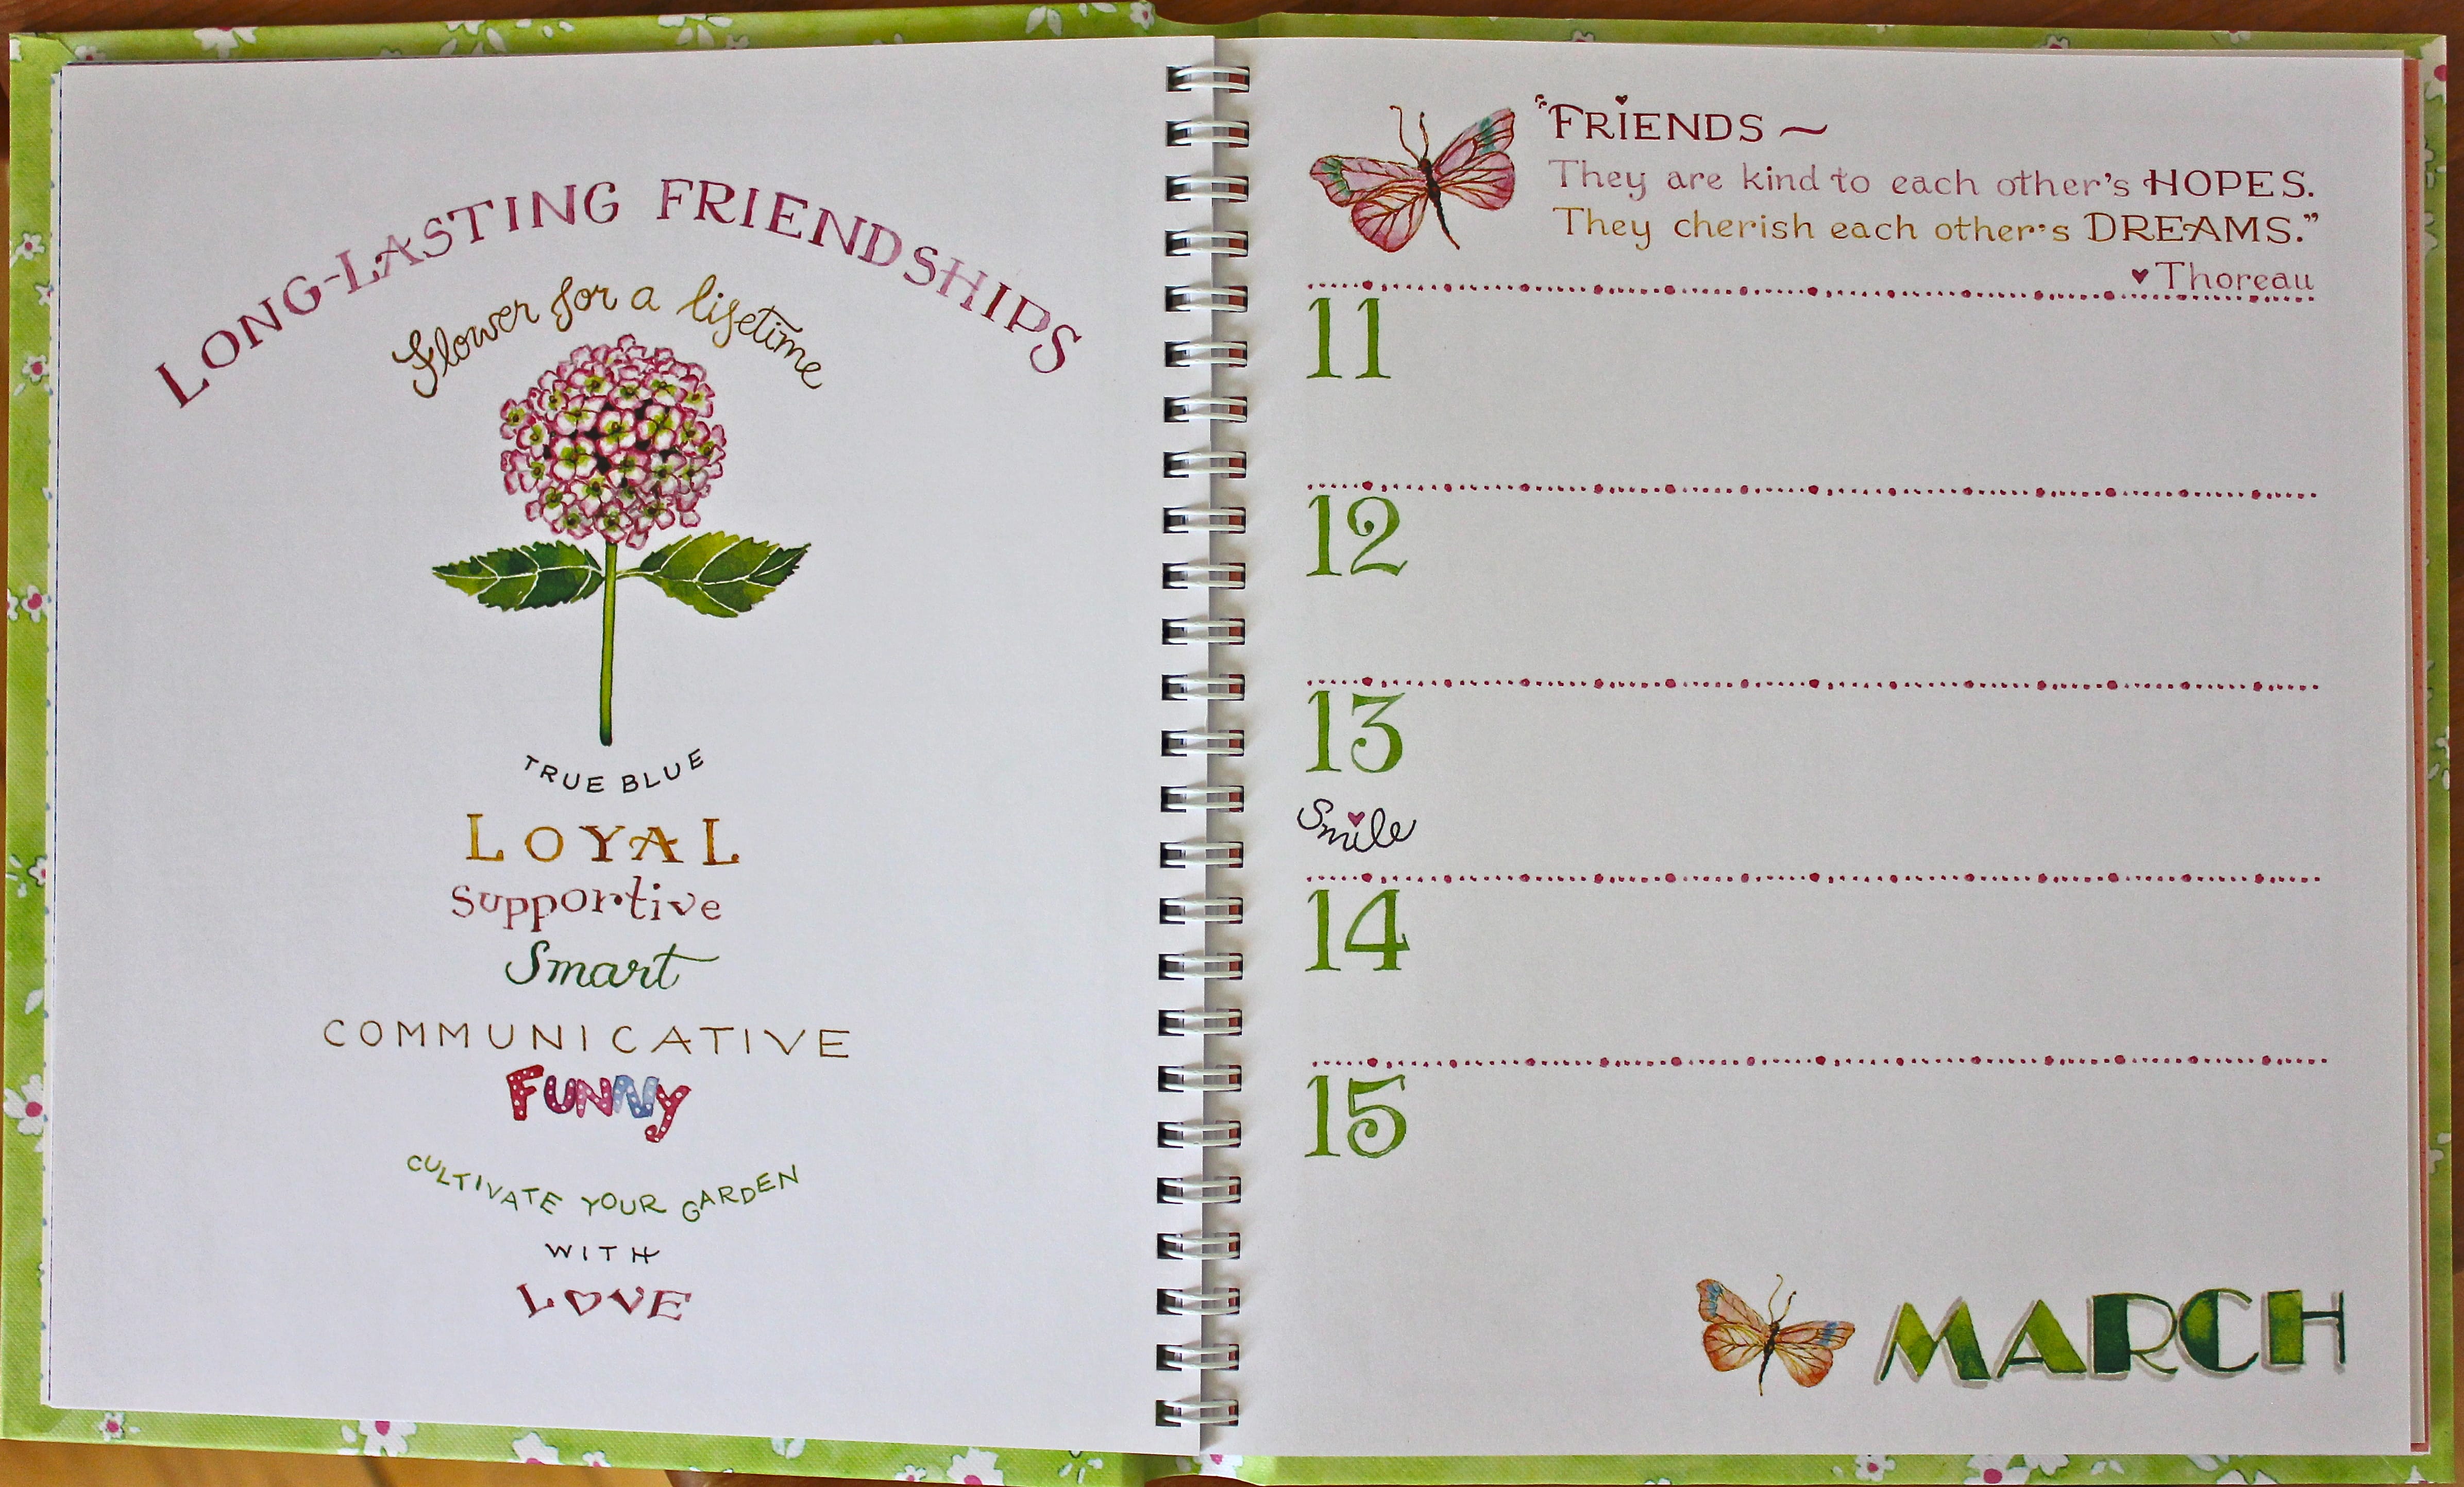 LONG-LASTING FRIENDSHIPS
Flower for a lifetime
TRUE BLUE
LOYAL
Supportive
Smart
COMMUNICATIVE
FUNNY
CULTIVATE YOUR GARDEN
WITH
LOVE
"FRIENDS ~
They are kind to each other's HOPES.
They cherish each other's DREAMS."
♥ Thoreau
11
12
13
Smile
14
15
MARCH